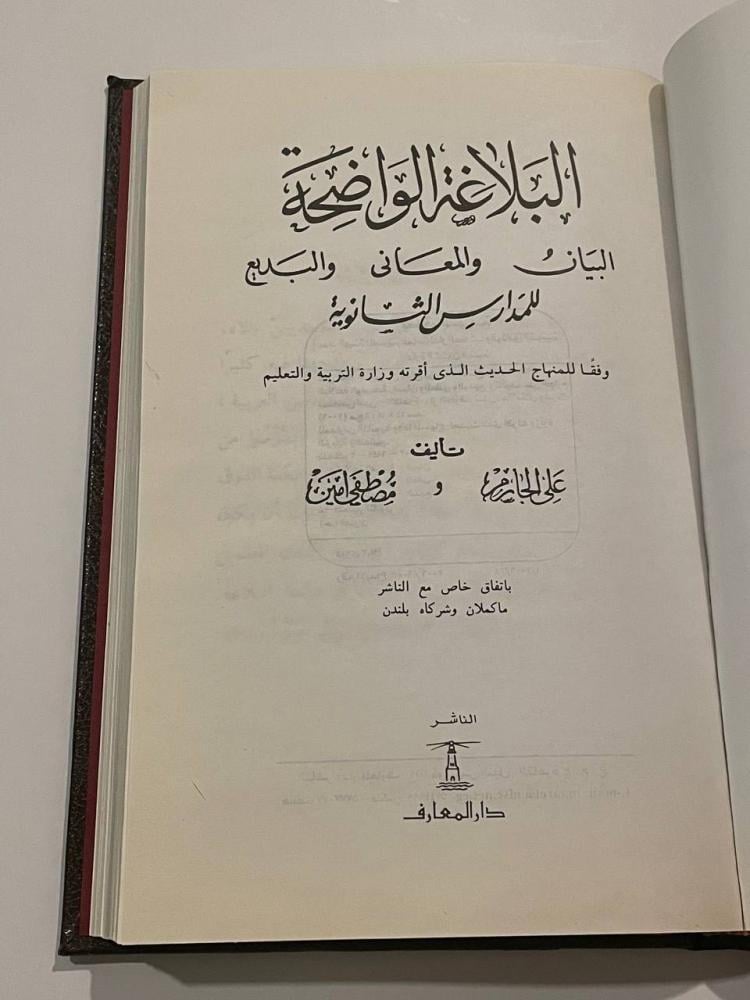 البَلاغة الوَاضِحَة
البَيَانُ والمعَانى والبَديع
للمدَارسِ الثانوية
وفقًا للمنهاج الحديث الذى أقرته وزارة التربية والتعليم
تأليف
عَلى الجَارِم و مُصْطفى أمين
باتفاق خاص مع الناشر
ماكملان وشركاه بلندن
الناشر
دار المعارف